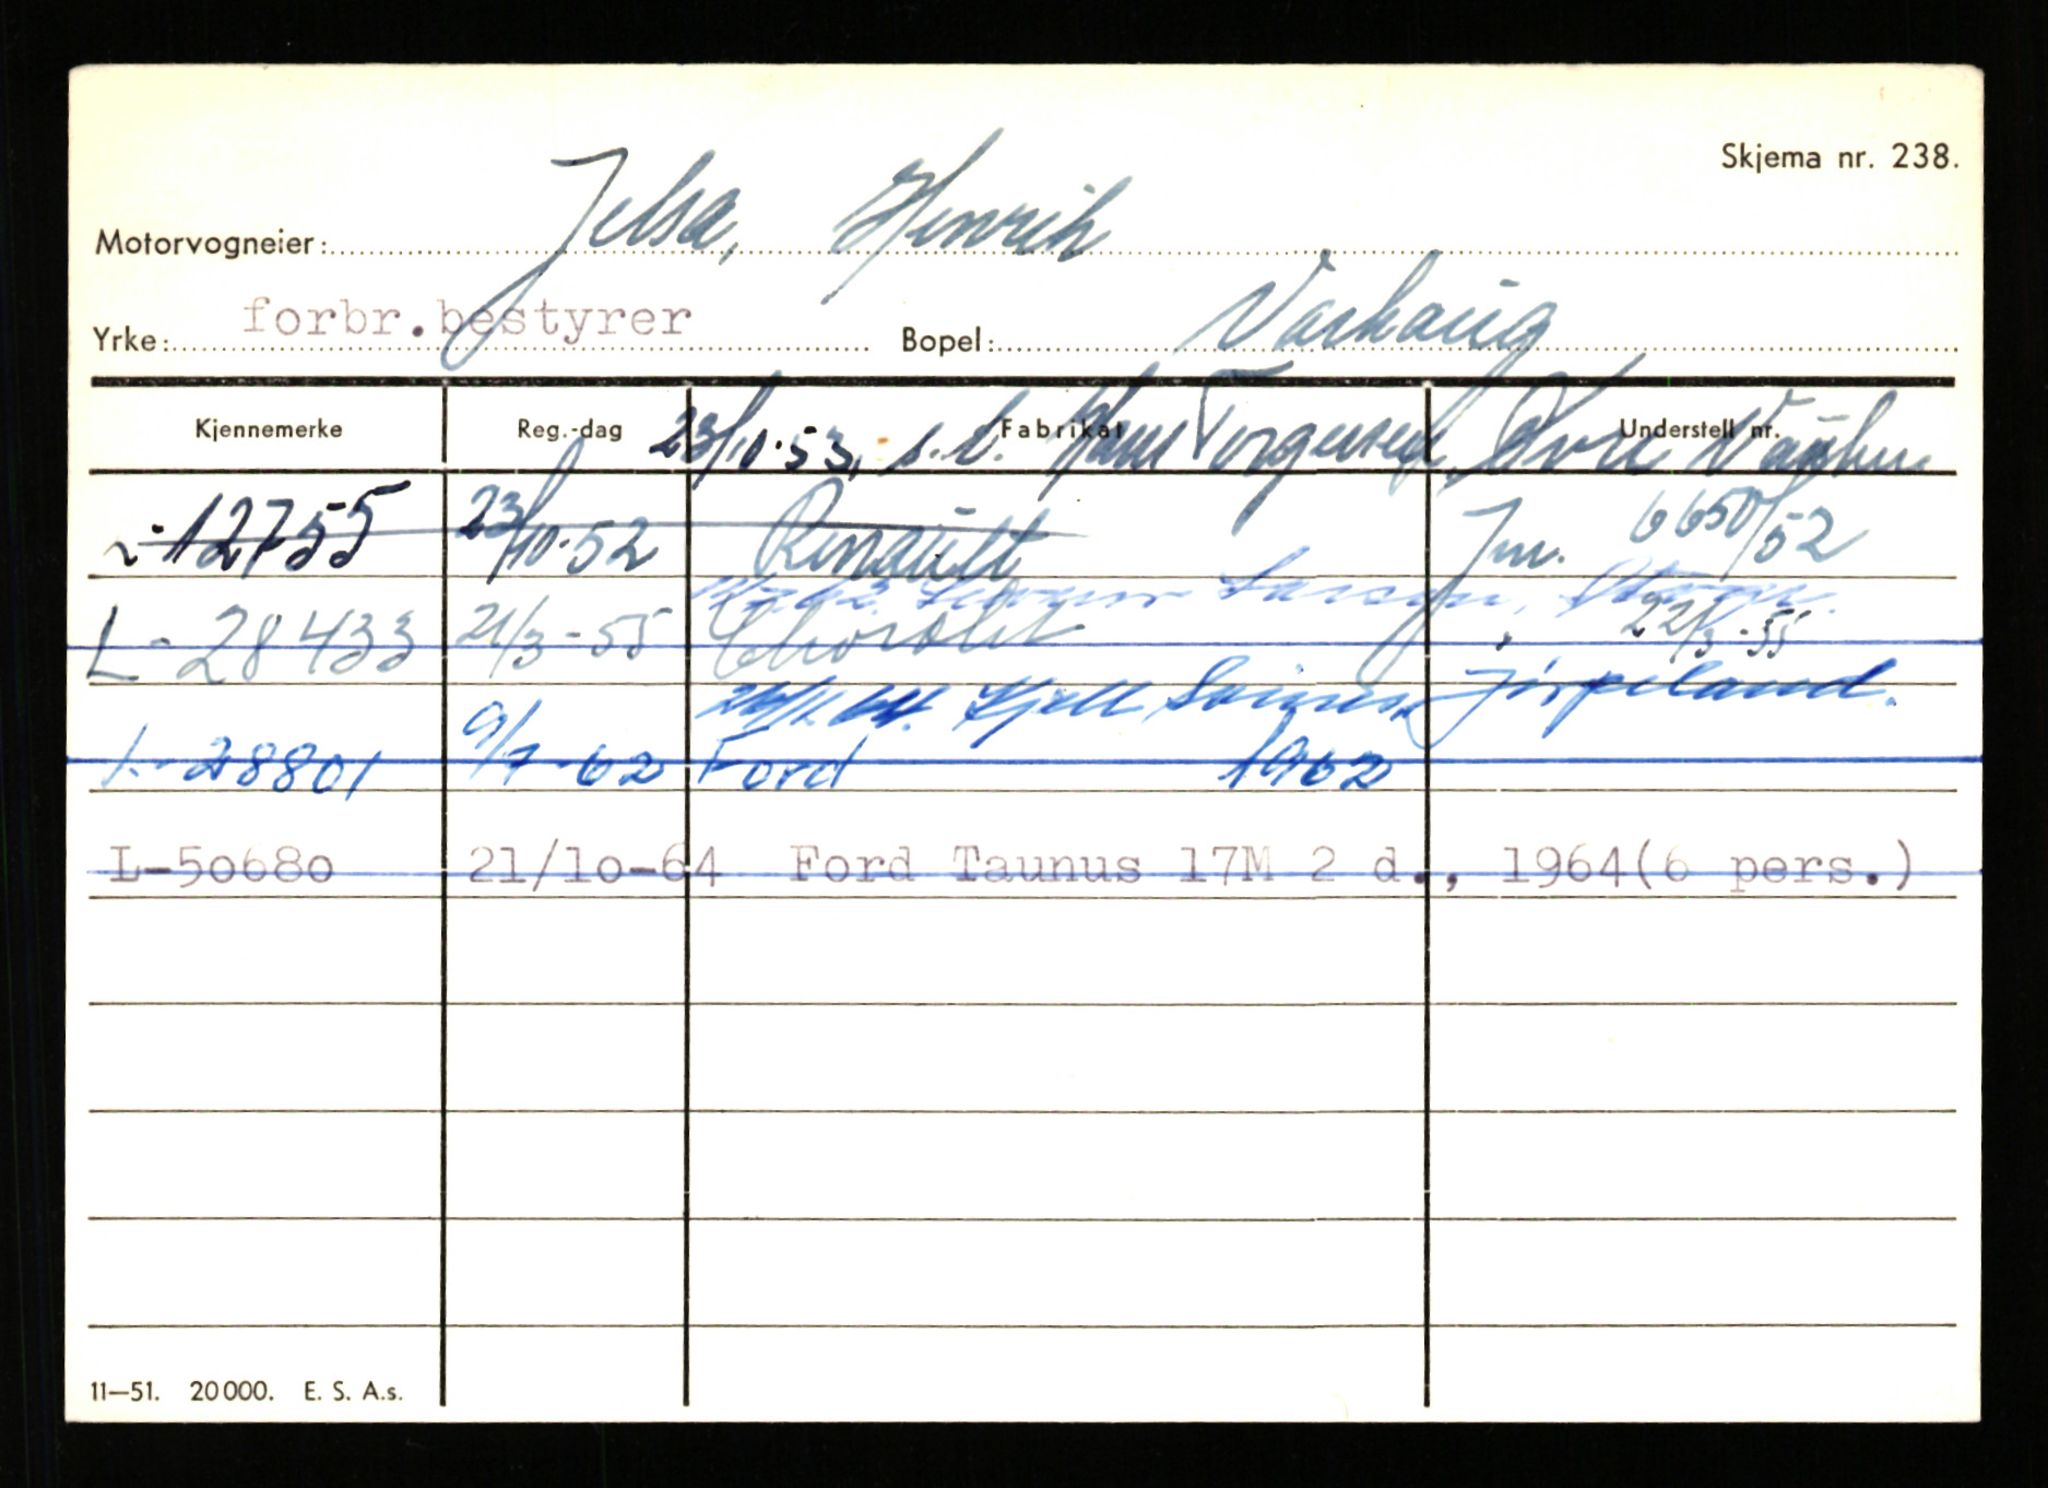 Skjema nr. 238.
Motorvogneier: Jelsa, Henrik
Yrke: forbr.bestyrer Bopel: Varhaug
Kjennemerke Reg.-dag Fabrikat Understell nr.
23/10.53, s.l. Hans Torgersen,
L-12755 23/10.52 Renault Jnr. 6650/52
Larsen,
L-28433 21/3-55 22/3-55
Kjell Jørpeland.
L-28801 9/7-62 Ford 1962
L-50680 21/10-64 Ford Taunus 17M 2 d., 1964(6 pers.)
11—51. 20000. E. S. A.s.